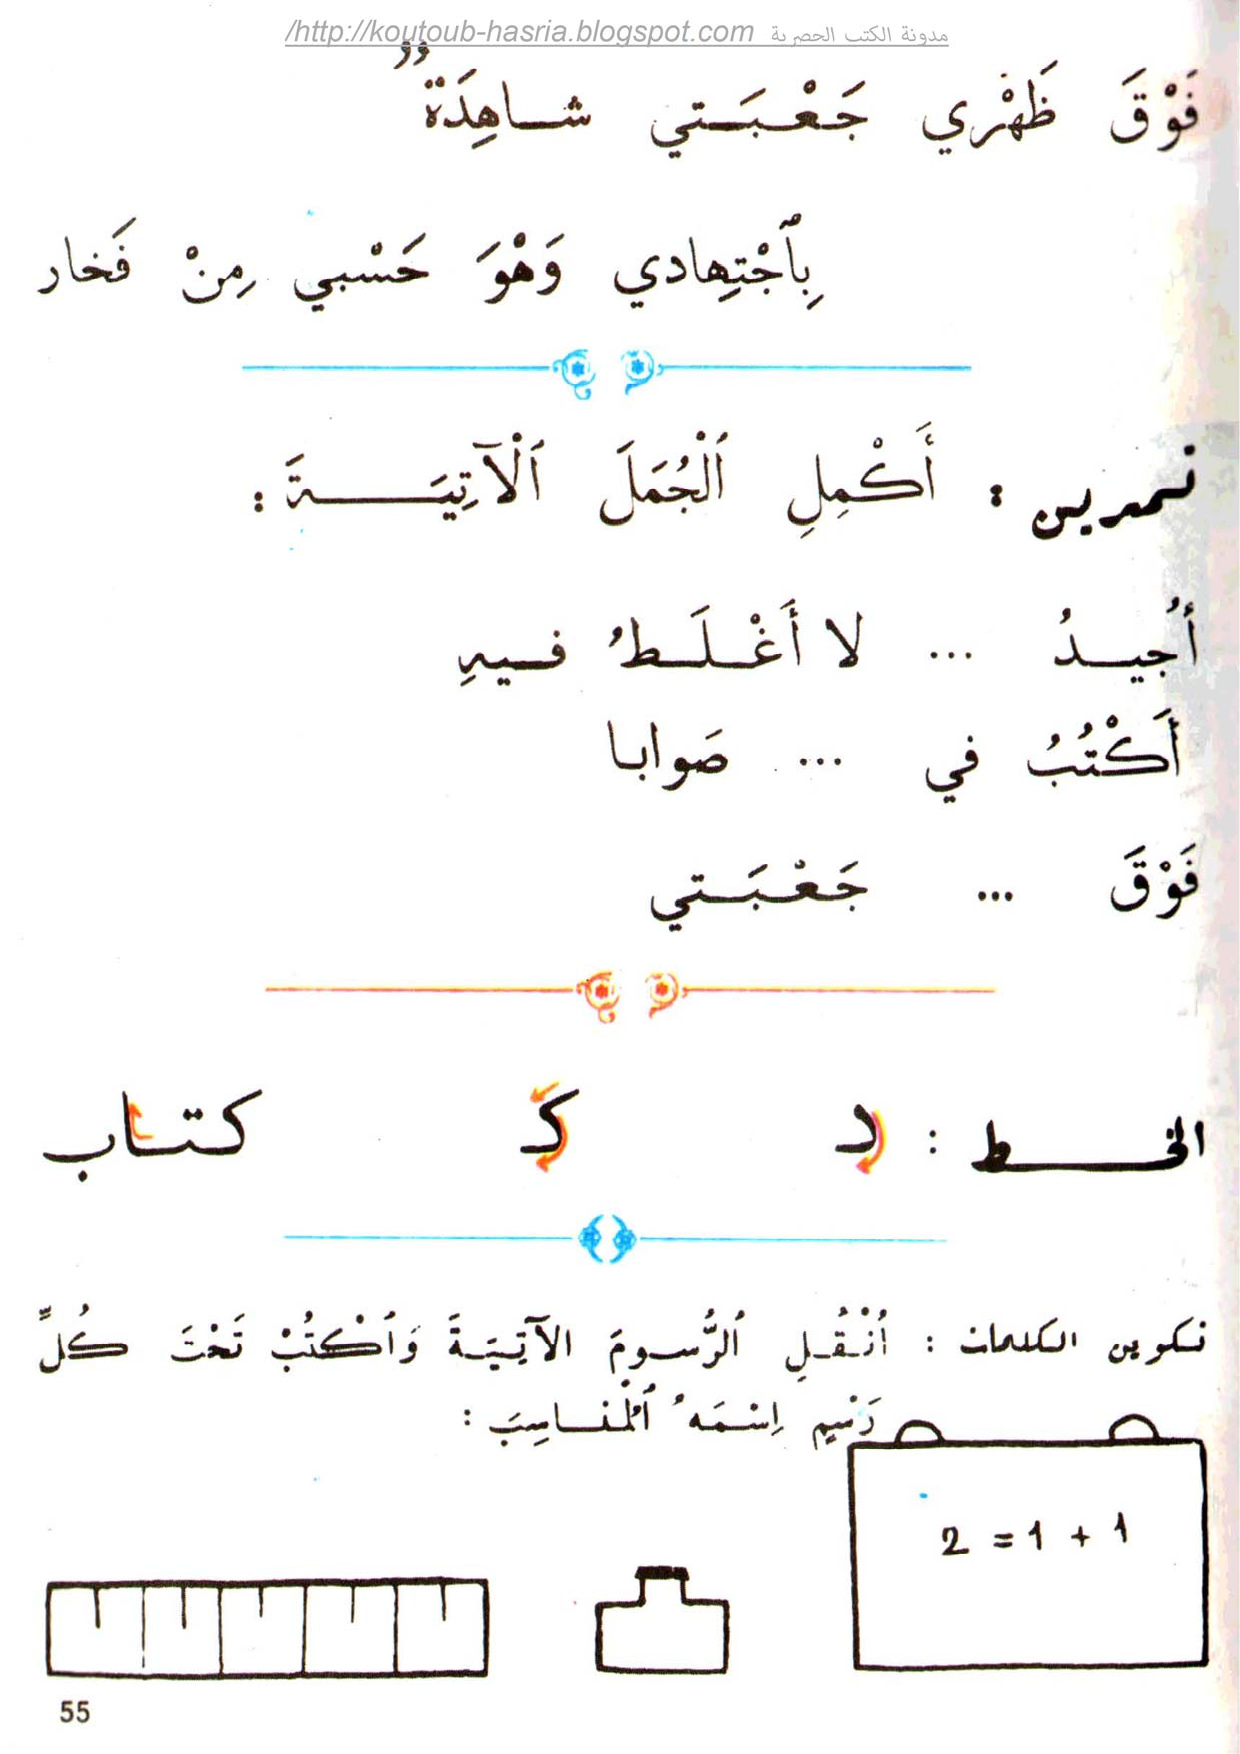 مدونة الكتب الحصرية http://koutoub-hasria.blogspot.com/
فَوْقَ ظَهْري جَعْبَتي شاهِدَةٌ
بِٱجْتِهادي وَهْوَ حَسْبي مِنْ فَخار
تمرين : أَكْمِلِ ٱلْجُمَلَ ٱلْآتِيَةَ :
أُجيدُ ... لا أَغْلَطُ فيهِ
أَكْتُبُ في ... صَوابا
فَوْقَ ... جَعْبَتي
الخط : د كَ كتاب
تكوين الكلمات : اُنْقُلِ ٱلرُّسومَ الآتِيَةَ وَٱكْتُبْ تَحْتَ كُلِّ
رَسْمٍ اِسْمَهُ ٱلْمُناسِبَ :
2 = 1 + 1
55